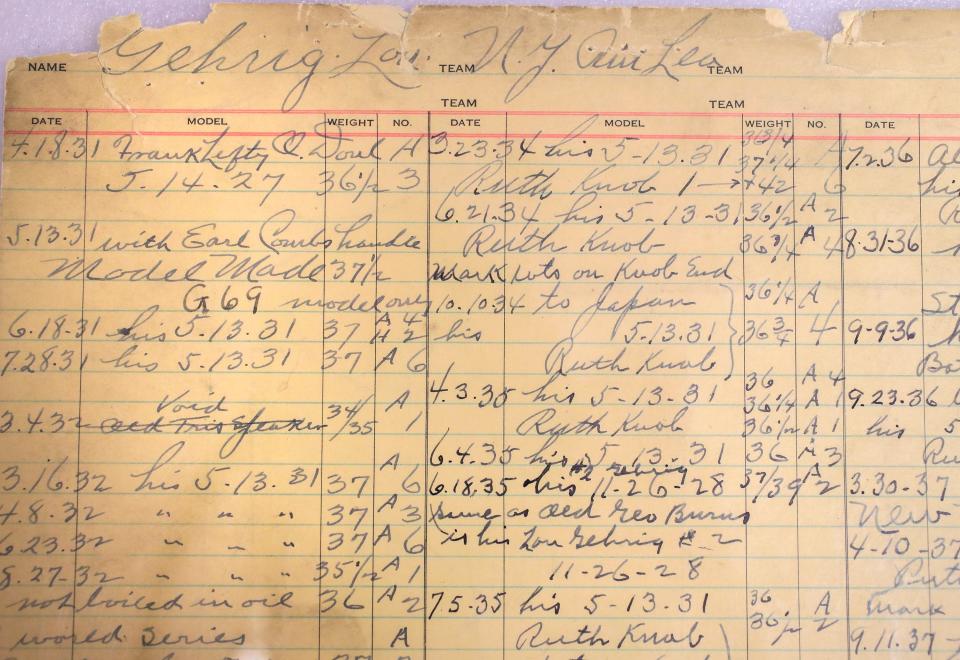 NAME Gehrig. Lou. TEAM N.Y. Am Lea TEAM
TEAM TEAM
DATE MODEL WEIGHT NO. DATE MODEL WEIGHT NO. DATE
4.18.31 Frank Lefty O. Doul A
5.14.27 36 1/2 3
5.13.31 with Earl Combs handle
Model Made 37 1/2
G69 model only
6.18.31 his 5.13.31 37 A 4 A 2
7.28.31 his 5.13.31 37 A 6
Void 34/35 A
3.4.32 Old Tris Speaker 1
3.16.32 his 5-13.31 37 A 6
4.8.32 " " " 37 A 3
6.23.32 " " " 37 A 6
8.27-32 " " " 35 1/2 A 1
not boiled in oil 36 A 2
world series A
3.23.34 his 5-13.31 37 1/4 A
Ruth Knob 1 → 42 6
6.21.34 his 5-13-31 36 1/2 A 2
Ruth Knob 36 3/4 A 4
Mark lots on Knob End
10.10.34 to Japan 36 1/4 A
his 5.13.31 36 3/4 4
Ruth Knob
36 A 4
4.3.35 his 5-13-31 36 1/4 A 1
Ruth Knob 36 1/2 A 1
6.4.35 his 5-13-31 36 A 3
#2 Gehrig
6.18.35 his 11-26-28 37/39 A 2
same as Old Geo Burns
is his Lou Gehrig # 2
11-26-28
7.5-35 his 5-13.31 36 A
Ruth Knob 36 1/2 2
7.2.36
his
8-31-36
9-9-36
9.23-36
his 5
3.30-37
New
4-10-37
Mark
9.11.37